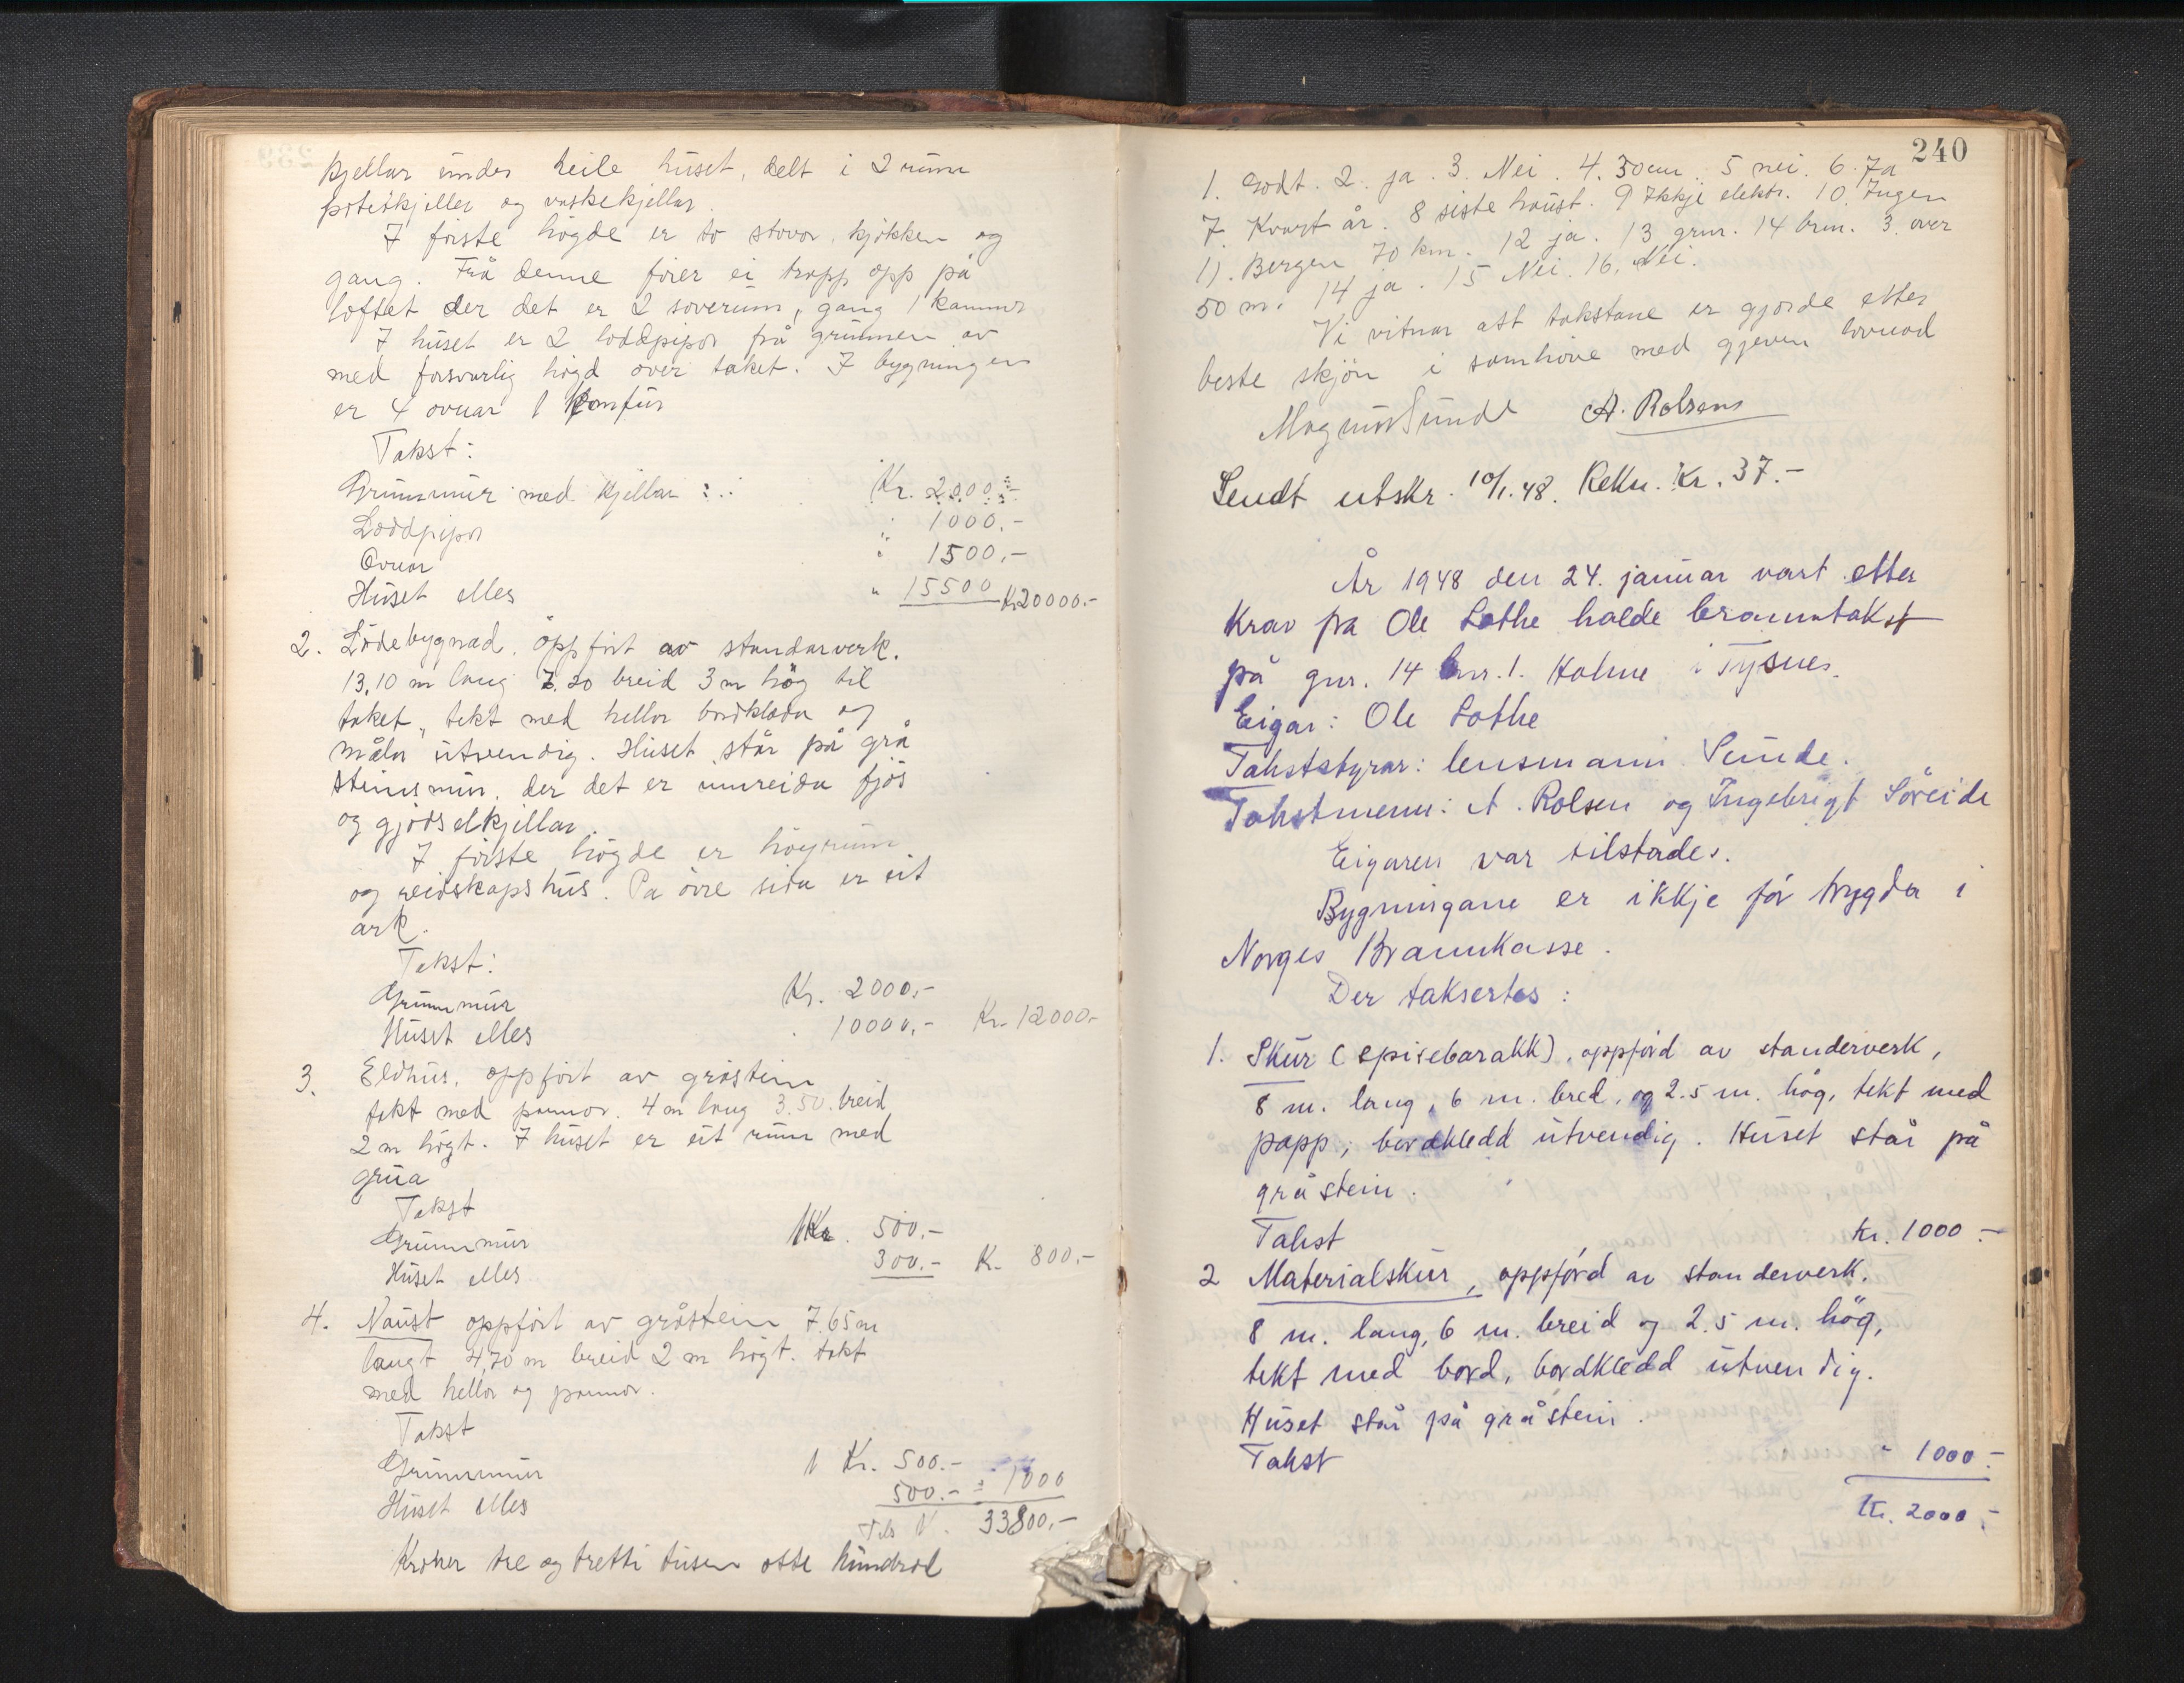 kjellar under heile huset, delt i 2 rum
potetkjeller og vaskekjellar.
I förste högde er to stovor, kjökken og
gang. Frå denne förer ei trapp opp på
loftet der det er 2 soverum, gang 1 kammer
I huset er 2 loddpipor frå grunnen av
med forsvarlig högd over taket. I bygningen
er 4 ovnar 1 komfur
Takst:
Grunnmur med kjellar : Kr. 2000.-
Loddpipor " 1000.-
Ovnar " 1500.-
Huset elles " 15500 Kr 20000.-
2. Lödebygnad, oppfört av standarverk.
13,10 m lang 7.20 breid 3 m hög til
taket, tekt med hellor bordkledd og
måla utvendig. Huset står på grå
steinsmur, der det er innreidd fjös
og gjödselkjellar.
I förste högde er höyrum
og reidskapshus. På övre sida er eit
ark.
Takst:
Grunnmur Kr. 2000.-
Huset elles 10000,- Kr. 12000.-
3. Eldhus, oppfört av gråstein
tekt med pannor. 4 m lang 3.50 breid
2 m högt. I huset er eit rum med
grua
Takst
Grunnmur Kr. 500.-
Huset elles 300.- Kr. 800.-
4. Naust oppfört av gråstein 7.65 m
langt 4,70 m breid 2 m högt. tekt
med hellor og pannor.
Takst
Grunnmur Kr. 500.-
Huset elles 500.- " 1000
Tils 33800,-
Kroner tre og tretti tusen otte hundred
240
1. Godt. 2. ja. 3. Nei. 4. 30 cm. 5 nei. 6. Ja
7. Kvart år. 8 siste haust. 9 Ikkje elektr. 10. Ingen
11. Bergen 70 km. 12 ja. 13 grm. 14 brm. 3. over
50 m. 14 ja. 15 Nei. 16. Nei.
Vi vitnar att takstane er gjorde etter
beste skjön i samhöve med gjeven lovnad
Magnus Sunde A. Rolsen
Sendt utskr. 10/1.48. Rekn. Kr. 37.-
År 1948 den 24. januar vart etter
krav fra Ole Lothe halde branntakst
på gnr. 14 bnr. 1. Holme i Tysnes.
Eigar: Ole Lothe
Takststyrar: lensmann Sunde.
Takstmenn: A. Rolsen og Ingebrigt Söreide
Eigaren var tilstades.
Bygningane er ikkje för trygda i
Norges Brannkasse.
Der taksertes:
1. Skur (spisebarakk), oppförd av standerverk,
8 m. lang, 6 m. bred, og 2.5 m. hög, tekt med
papp, bordkledd utvendig. Huset står på
gråstein.
Takst kr. 1000.-
2 Materialskur, oppförd av standerverk.
8 m. lang, 6 m. breid og 2.5 m. hög,
tekt med bord, bordkledd utvendig.
Huset står på gråstein.
Takst " 1000.-
Kr. 2000.-